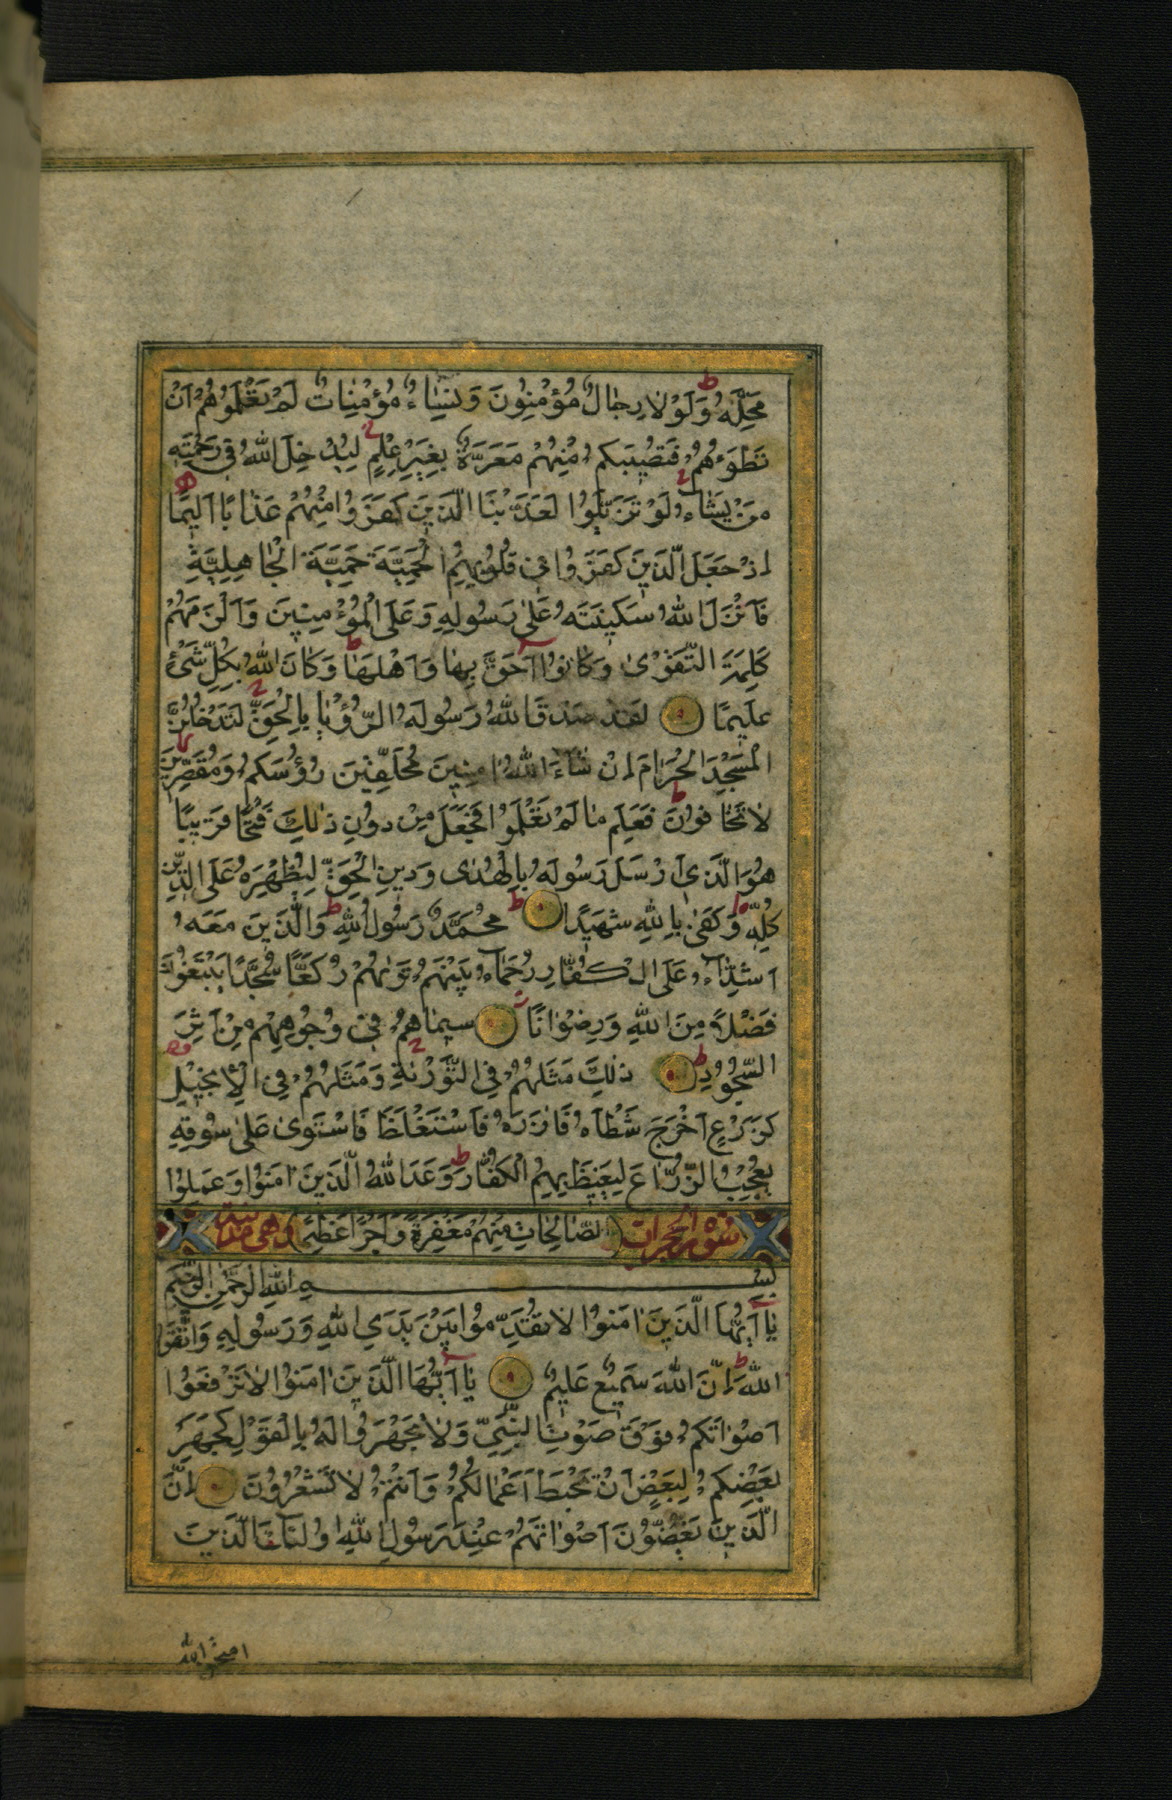 مَحِلَّهُ ط وَلَوْلَا رِجَالٌ مُؤْمِنُونَ وَنِسَاءٌ مُؤْمِنَاتٌ لَمْ تَعْلَمُوهُمْ اَنْ
تَطَؤُهُمْ فَتُصِيبَكُمْ مِنْهُمْ مَعَرَّةٌ بِغَيْرِ عِلْمٍ ج لِيُدْخِلَ اللّٰهُ فِي رَحْمَتِهِ
مَنْ يَشَاءُ ج لَوْ تَزَيَّلُوا لَعَذَّبْنَا الَّذِينَ كَفَرُوا مِنْهُمْ عَذَابًا اَلِيمًا
اِذْ جَعَلَ الَّذِينَ كَفَرُوا فِي قُلُوبِهِمُ الْحَمِيَّةَ حَمِيَّةَ الْجَاهِلِيَّةِ
فَاَنْزَلَ اللّٰهُ سَكِينَتَهُ عَلٰى رَسُولِهِ وَعَلَى الْمُؤْمِنِينَ وَاَلْزَمَهُمْ
كَلِمَةَ التَّقْوٰى وَكَانُوا اَحَقَّ بِهَا وَاَهْلَهَا ط وَكَانَ اللّٰهُ بِكُلِّ شَيْءٍ
عَلِيمًا لَقَدْ صَدَقَ اللّٰهُ رَسُولَهُ الرُّؤْيَا بِالْحَقِّ ج لَتَدْخُلُنَّ
الْمَسْجِدَ الْحَرَامَ اِنْ شَاءَ اللّٰهُ اٰمِنِينَ مُحَلِّقِينَ رُؤُسَكُمْ وَمُقَصِّرِينَ
لَا تَخَافُونَ ط فَعَلِمَ مَا لَمْ تَعْلَمُوا فَجَعَلَ مِنْ دُونِ ذٰلِكَ فَتْحًا قَرِيبًا
هُوَ الَّذِي اَرْسَلَ رَسُولَهُ بِالْهُدٰى وَدِينِ الْحَقِّ لِيُظْهِرَهُ عَلَى الدِّينِ
كُلِّهِ ط وَكَفٰى بِاللّٰهِ شَهِيدًا ط مُحَمَّدٌ رَسُولُ اللّٰهِ ط وَالَّذِينَ مَعَهُ
اَشِدَّاءُ عَلَى الْكُفَّارِ رُحَمَاءُ بَيْنَهُمْ تَرٰيهُمْ رُكَّعًا سُجَّدًا يَبْتَغُونَ
فَضْلًا مِنَ اللّٰهِ وَرِضْوَانًا سِيمَاهُمْ فِي وُجُوهِهِمْ مِنْ اَثَرِ
السُّجُودِ ط ذٰلِكَ مَثَلُهُمْ فِي التَّوْرٰيةِ ج وَمَثَلُهُمْ فِي الْاِنْجِيلِ
كَزَرْعٍ اَخْرَجَ شَطْاَهُ فَاٰزَرَهُ فَاسْتَغْلَظَ فَاسْتَوٰى عَلٰى سُوقِهِ
يُعْجِبُ الزُّرَّاعَ لِيَغِيظَ بِهِمُ الْكُفَّارَ ط وَعَدَ اللّٰهُ الَّذِينَ اٰمَنُوا وَعَمِلُوا
سورة الحجرات الصَّالِحَاتِ مِنْهُمْ مَغْفِرَةً وَاَجْرًا عَظِيمًا وهى مدنية
بِسْمِ اللّٰهِ الرَّحْمٰنِ الرَّحِيمِ
يَا اَيُّهَا الَّذِينَ اٰمَنُوا لَا تُقَدِّمُوا بَيْنَ يَدَيِ اللّٰهِ وَرَسُولِهِ وَاتَّقُوا
اللّٰهَ ط اِنَّ اللّٰهَ سَمِيعٌ عَلِيمٌ يَا اَيُّهَا الَّذِينَ اٰمَنُوا لَا تَرْفَعُوا
اَصْوَاتَكُمْ فَوْقَ صَوْتِ النَّبِيِّ وَلَا تَجْهَرُوا لَهُ بِالْقَوْلِ كَجَهْرِ
بَعْضِكُمْ لِبَعْضٍ اَنْ تَحْبَطَ اَعْمَالُكُمْ وَاَنْتُمْ لَا تَشْعُرُونَ اِنَّ
الَّذِينَ يَغُضُّونَ اَصْوَاتَهُمْ عِنْدَ رَسُولِ اللّٰهِ اُولٰئِكَ الَّذِينَ
امتحن الله